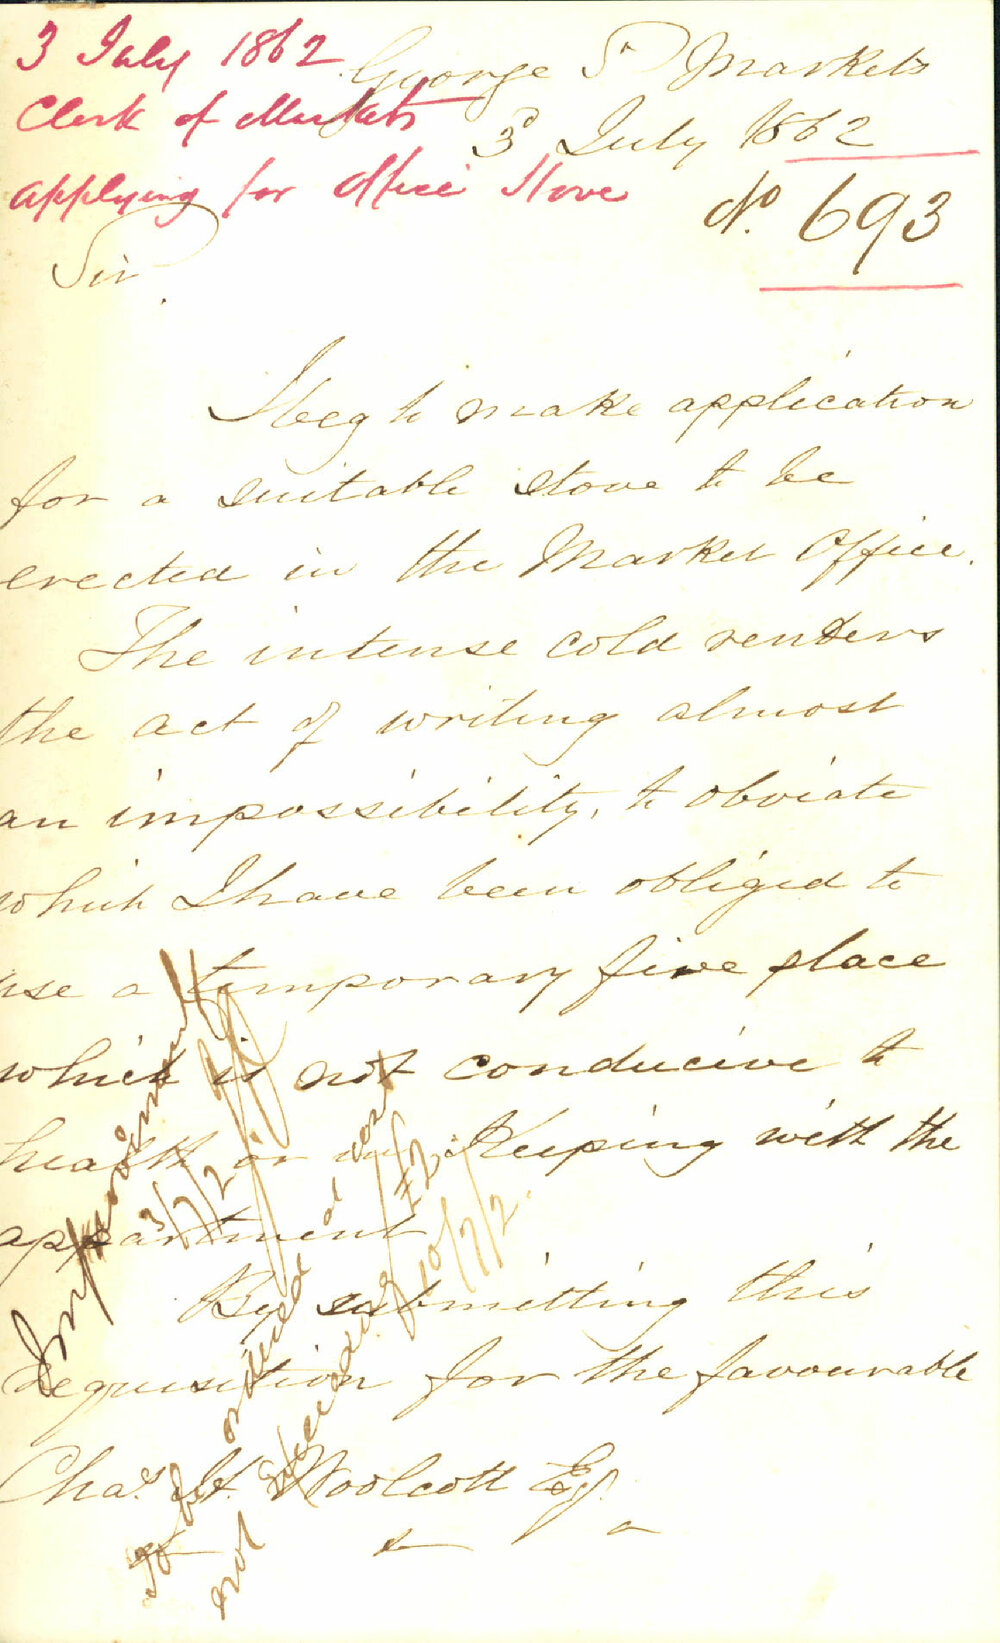 3 July 1862
Clerk of Markets
applying for Office Stove
George St Markets
3d July 1862
No. 693
Sir,
I beg to make application
for a suitable stove to be
erected in the Market Office.
The intense cold renders
the act of writing almost
an impossibility, to obviate
which I have been obliged to
use a temporary fire place
which is not conducive to
health or in keeping with the
appartment
By submitting this
requisition for the favourable
Chas. H. Woolcott Esq.
Improvement
3/7/2
To be ordered at cost
not exceeding £2
10/7/2.